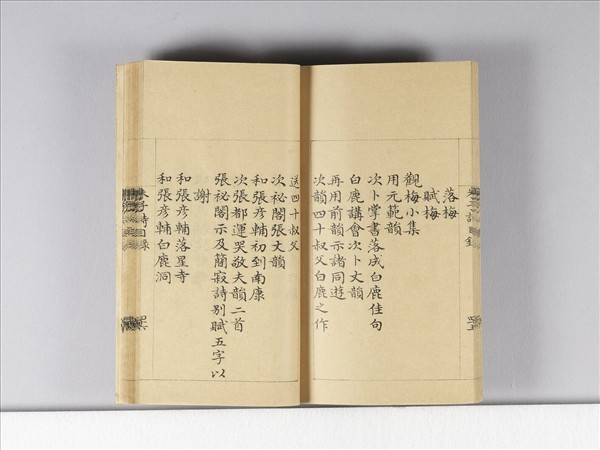 落梅
賦梅
觀梅小集
用元範韻
次卜掌書落成白鹿佳句
白鹿講會次卜丈韻
再用前韻示諸同遊
次韻四十叔父白鹿之作
送四十叔父
次祕閣張丈韻
和張彦輔初到南康
次張都運哭敬夫韻二首
張祕閣示及簡寂詩别賦五字以
謝
和張彦輔落星寺
和張彦輔白鹿洞